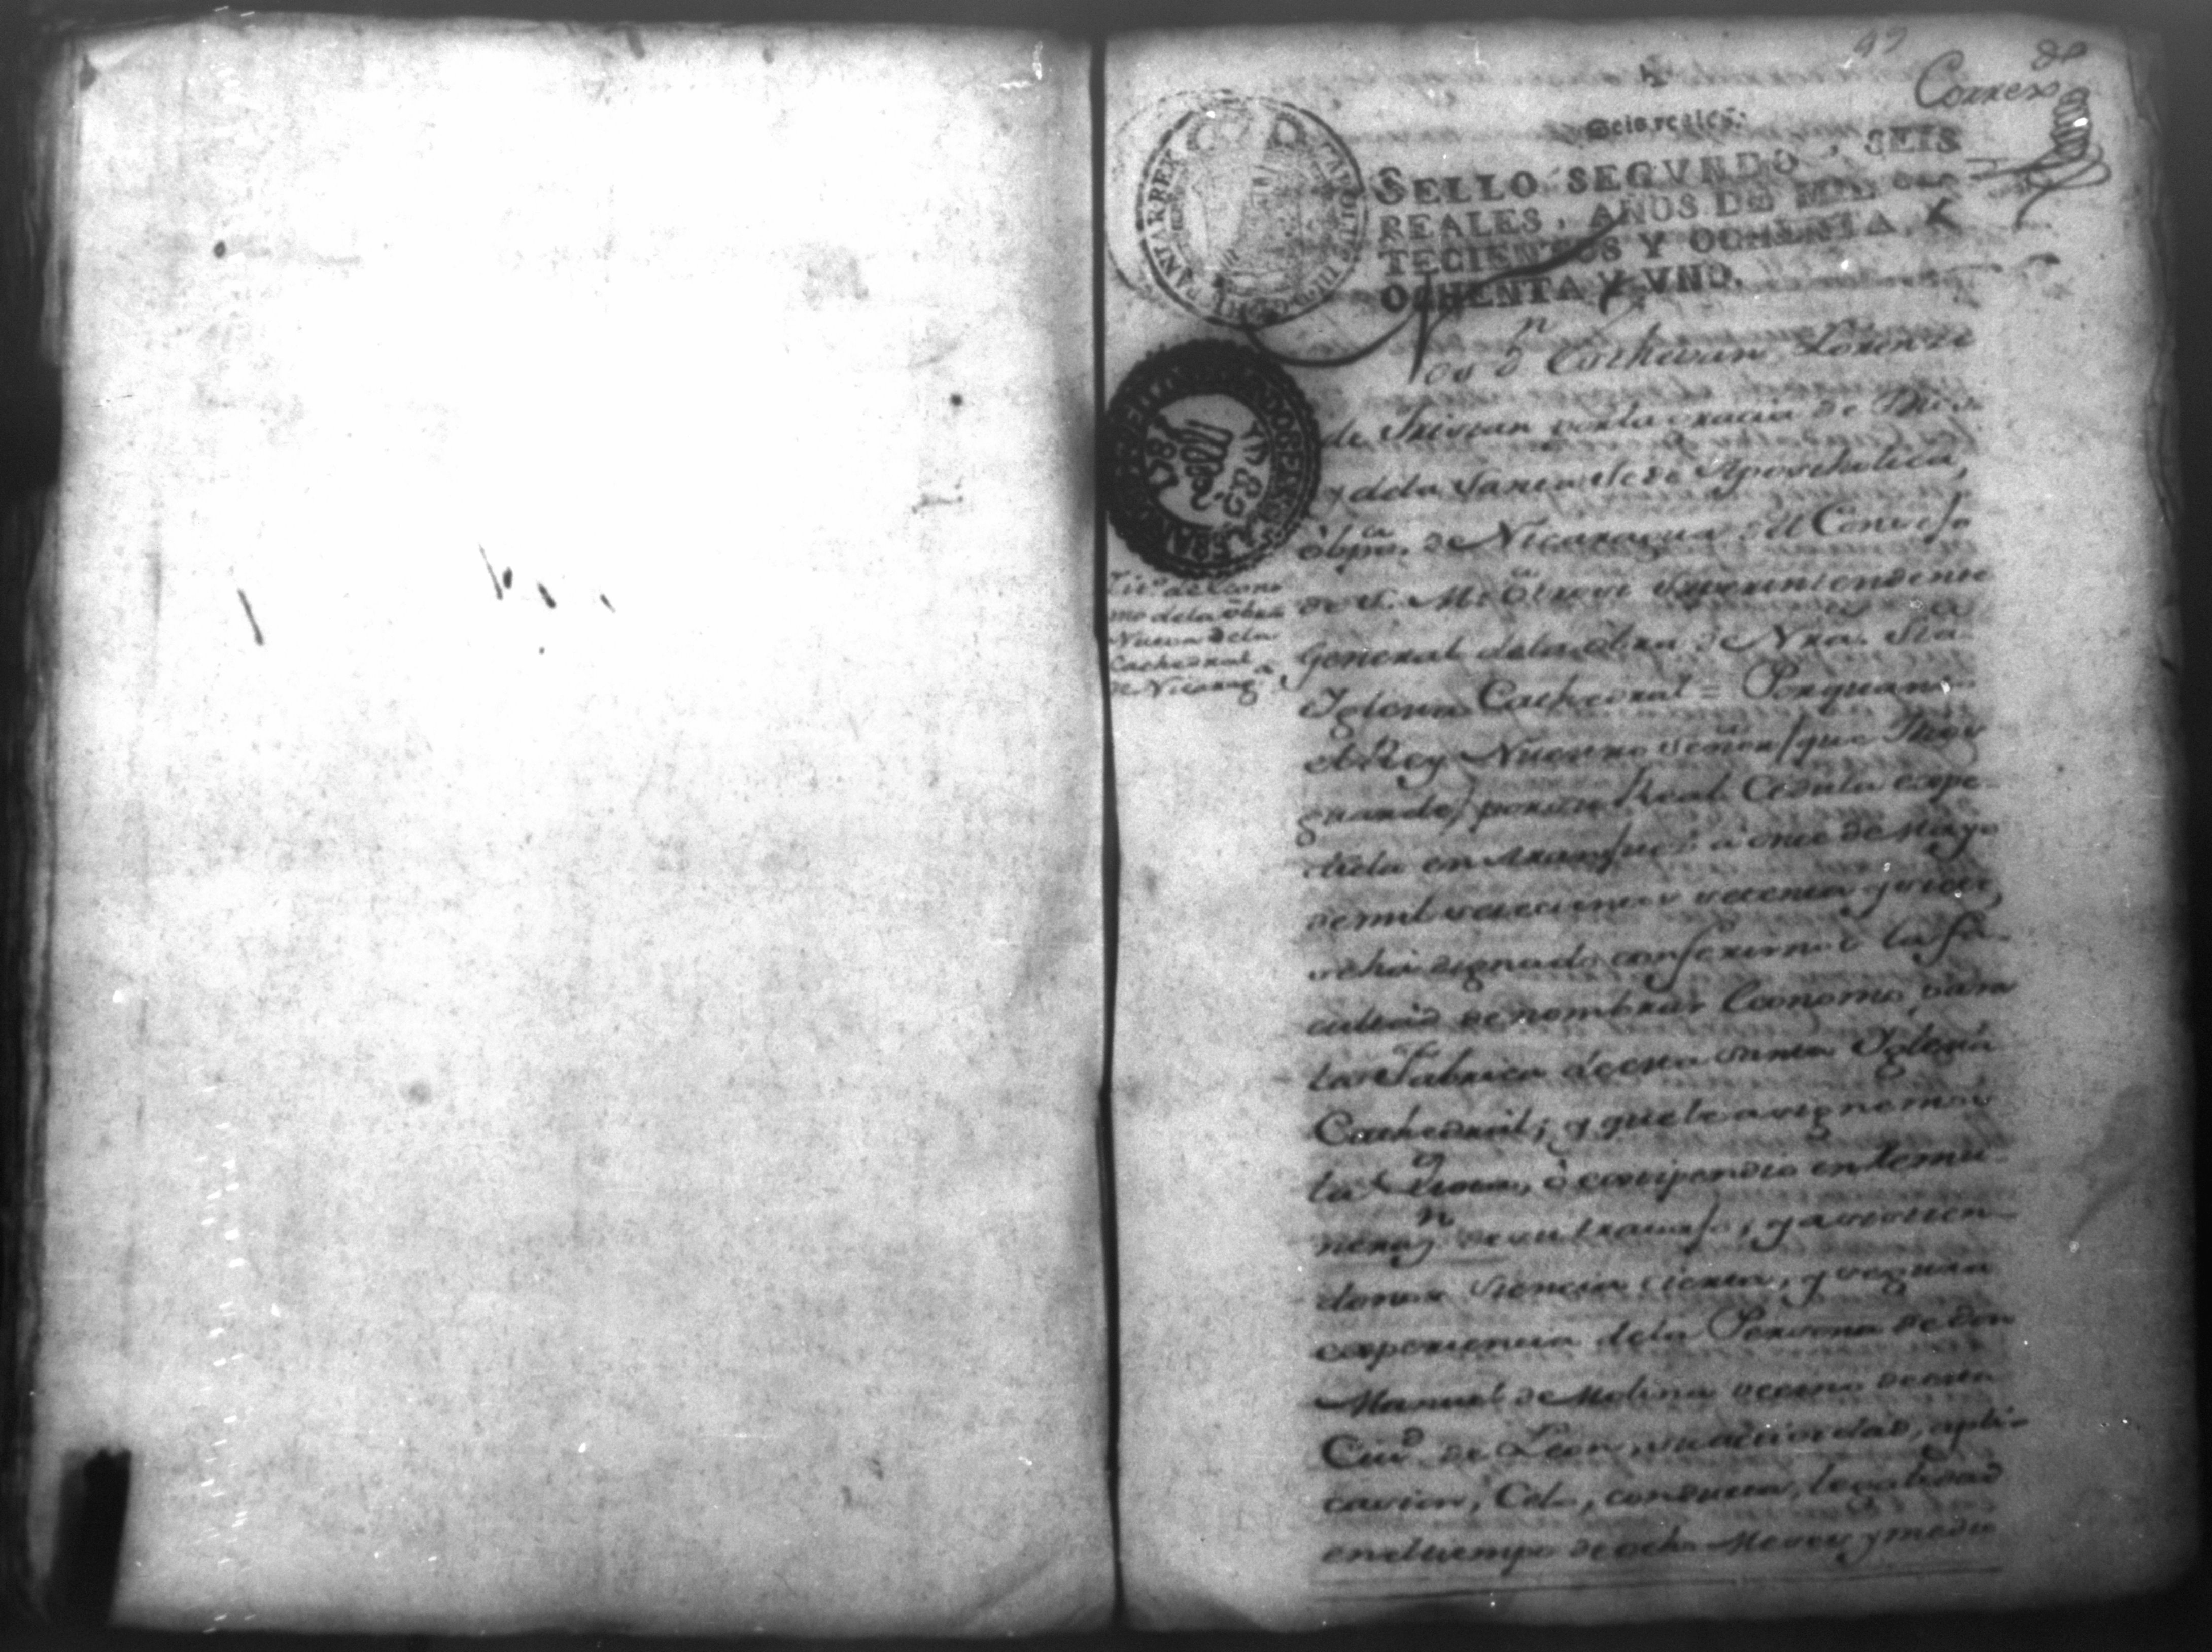 Correxdo
Seis reales.
SELLO SEGVNDO, SEIS
REALES, AÑOS DE MIL SE-
TECIENTOS Y OCHENTA, Y
OCHENTA Y VNO.
Nos Dn Esthevan Lorenzo
de Tristan por la gracia de Dios
y dela Santa Sede Apostholica,
obpo. de Nicaragua del Consejo
de S. M.
Titº de Econo
mo dela obra
Nueva dela
Cathedral
de Nicaraga.
Superintendente
General dela obra de Nra. Sta.
Iglesia Cathedral = Porquanto
el Rey Nuestro Señor (que Dios
guarde) por su Real Cedula expe-
dida en Aranjuez à once de Mayo
de mil setecientos setenta y
se ha dignado conferirnos la fa-
cultad de nombrar Economo, para
la Fabrica de esta Santa Iglesia
Cathedral; y que le asignemos
la ò estipendio en remu-
neran de su travajo; y
ciencia cierta, y segura
experiencia dela Persona de Don
Manuel de Molina vecino de esta
Ciud de Leon apli-
cacion, Celo, conducta, legalidad
en el tiempo de ocho Meses y medio